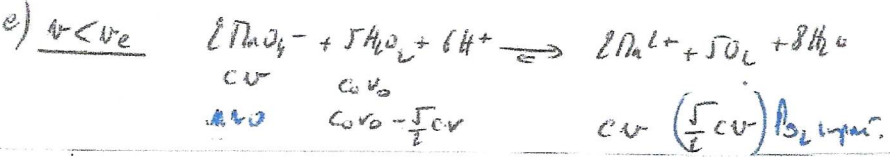 e) v < ve 2MnO4- + 5H2O2 + 6H+ ⇌ 2Mn2+ + 5O2 + 8H2O
cv c0v0
c0v0 - 5/2 cv cv (5/2 cv) PO2